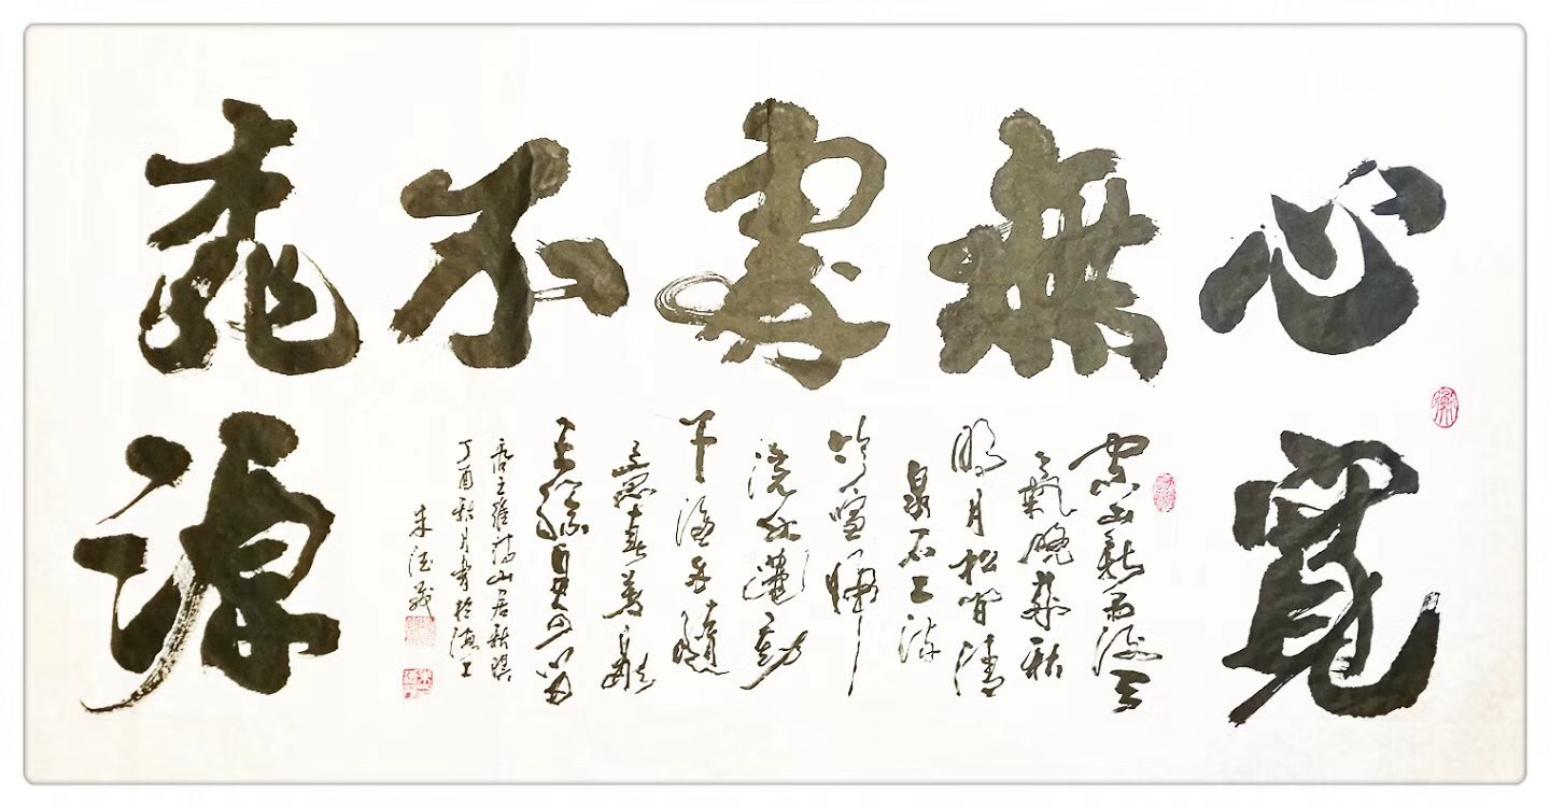 心寬
無處不桃源
空山新雨後天
氣晚來秋
明月松間清
泉石上流
竹喧歸
浣女蓮動
下漁舟隨
意春芳歇
王孫自可留
王維詩山居秋暝
丁酉秋月書於海上
朱